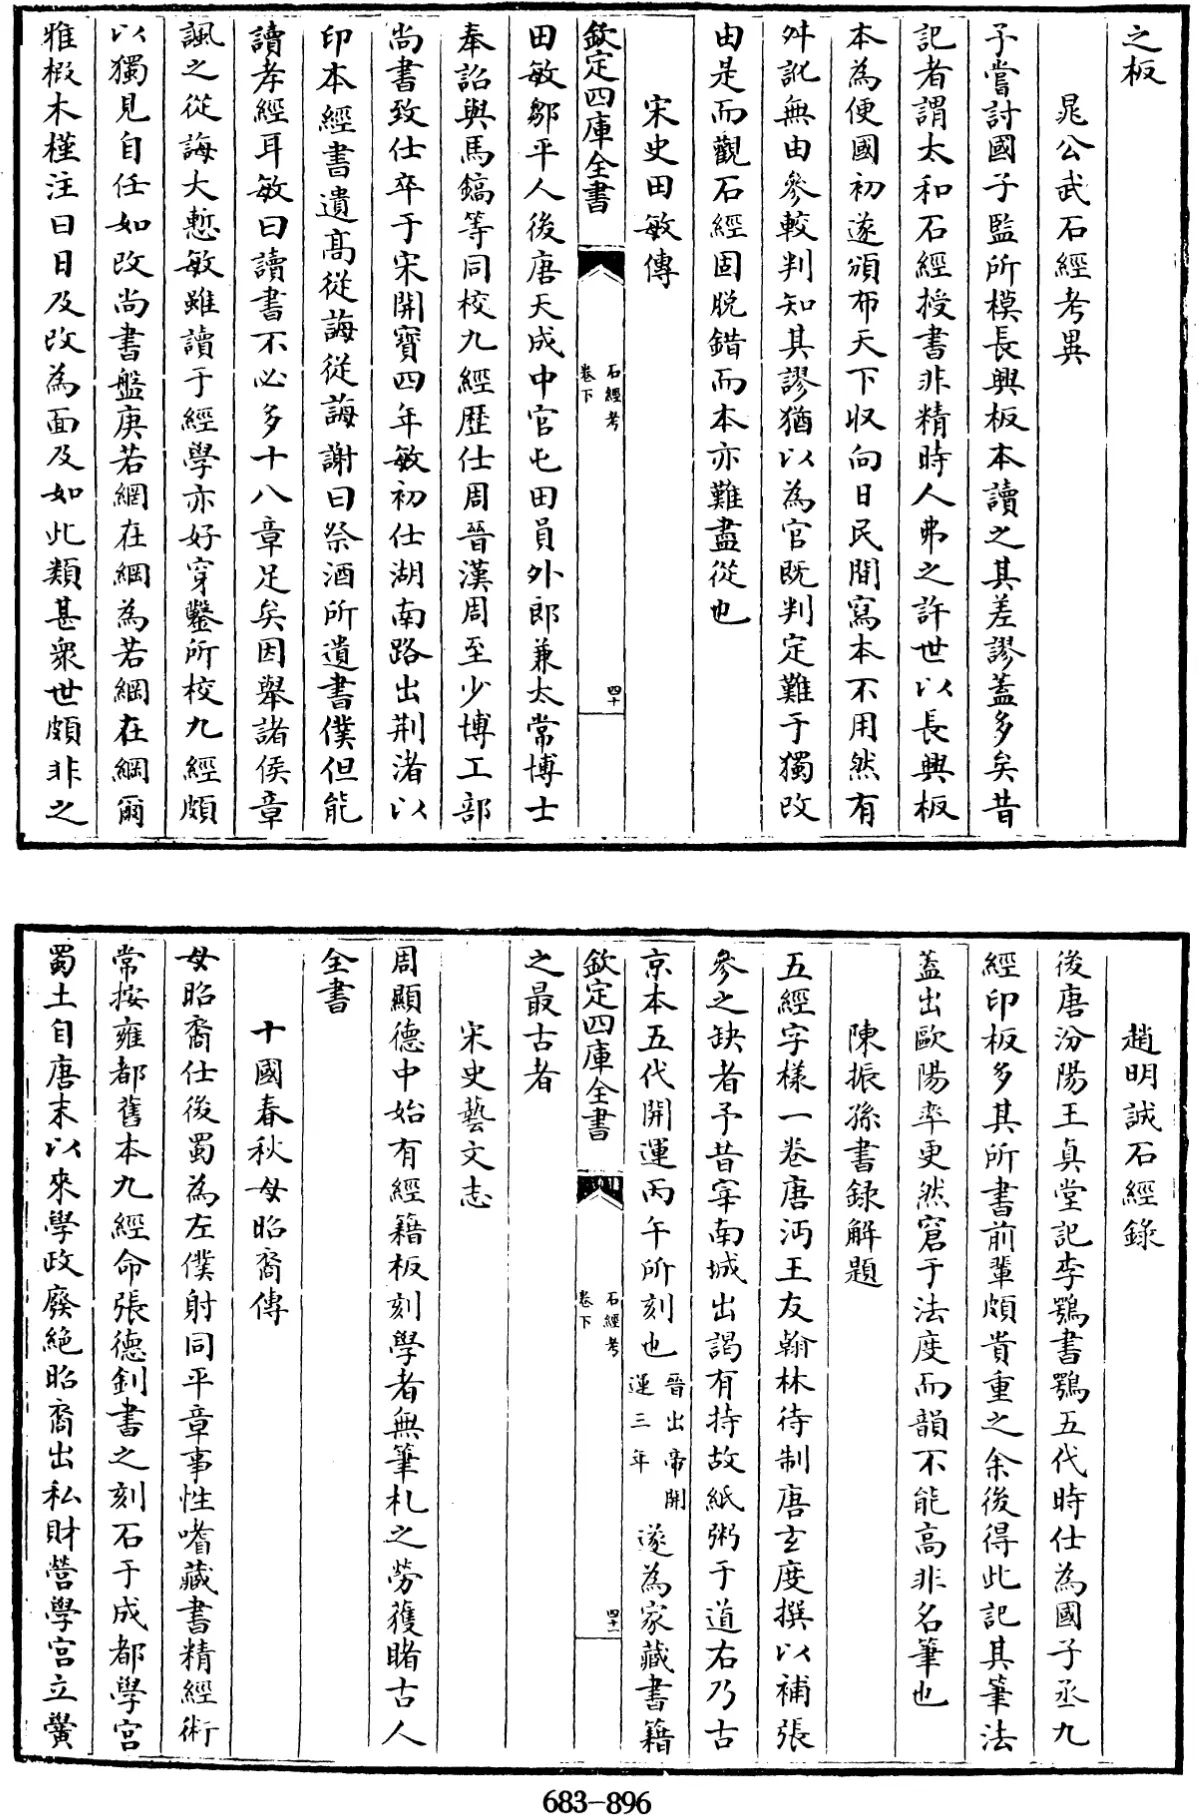 之板
晁公武石經考異
予嘗討國子監所模長興板本讀之其差謬蓋多矣昔
記者謂太和石經授書非精時人弗之許世以長興板
本為便國初遂頒布天下収向日民間寫本不用然有
舛訛無由參較判知其謬猶以為官既判定難于獨改
由是而觀石經固脱錯而本亦難盡從也
宋史田敏傳
欽定四庫全書
石經考
卷下
四十
田敏鄒平人後唐天成中官屯田員外郎兼太常博士
奉詔與馬鎬等同校九經歴仕周晉漢周至少博工部
尚書致仕卒于宋開寳四年敏初仕湖南路出荆渚以
印本經書遺髙從誨從誨謝曰祭酒所遺書僕但能
讀孝經耳敏曰讀書不必多十八章足矣因舉諸侯章
諷之從誨大慙敏雖讀于經學亦好穿鑿所校九經頗
以獨見自任如改尚書盤庚若網在綱為若綱在綱爾
雅椴木槿注曰日及改為面及如此類甚衆世頗非之
趙明誠石經錄
後唐汾陽王真堂記李鶚書鶚五代時仕為國子丞九
經印板多其所書前輩頗貴重之余後得此記其筆法
蓋出歐陽率更然窘于法度而韻不能高非名筆也
陳振孫書録解題
五經字様一卷唐沔王友翰林待制唐玄度撰以補張
參之缺者予昔宰南城出謁有持故紙粥于道右乃古
京本五代開運丙午所刻也
晉出帝開
運三年
遂為家藏書籍
欽定四庫全書
石經考
卷下
四十一
之最古者
宋史藝文志
周顯德中始有經籍板刻學者無筆札之勞獲睹古人
全書
十國春秋毋昭裔傳
毋昭裔仕後蜀為左僕射同平章事性嗜藏書精經術
常按雍都舊本九經命張德釗書之刻石于成都學宫
蜀土自唐末以來學政廢絶昭裔出私財營學宫立黌
683-896